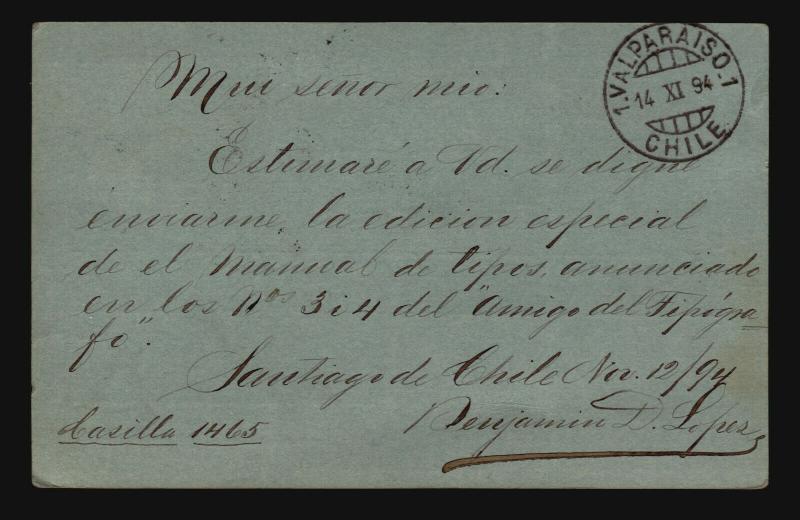 1. VALPARAISO. 1
14 XI 94
CHILE
Mui señor mio:
Estimaré a Vd. se digne
enviarme, la edicion especial
de el Manual de tipos, anunciado
en los Nos 3 i 4 del "Amigo del Tipógra-
fo".
Santiago de Chile Nov. 12/94
Casilla 1465
Benjamin D. Lopez